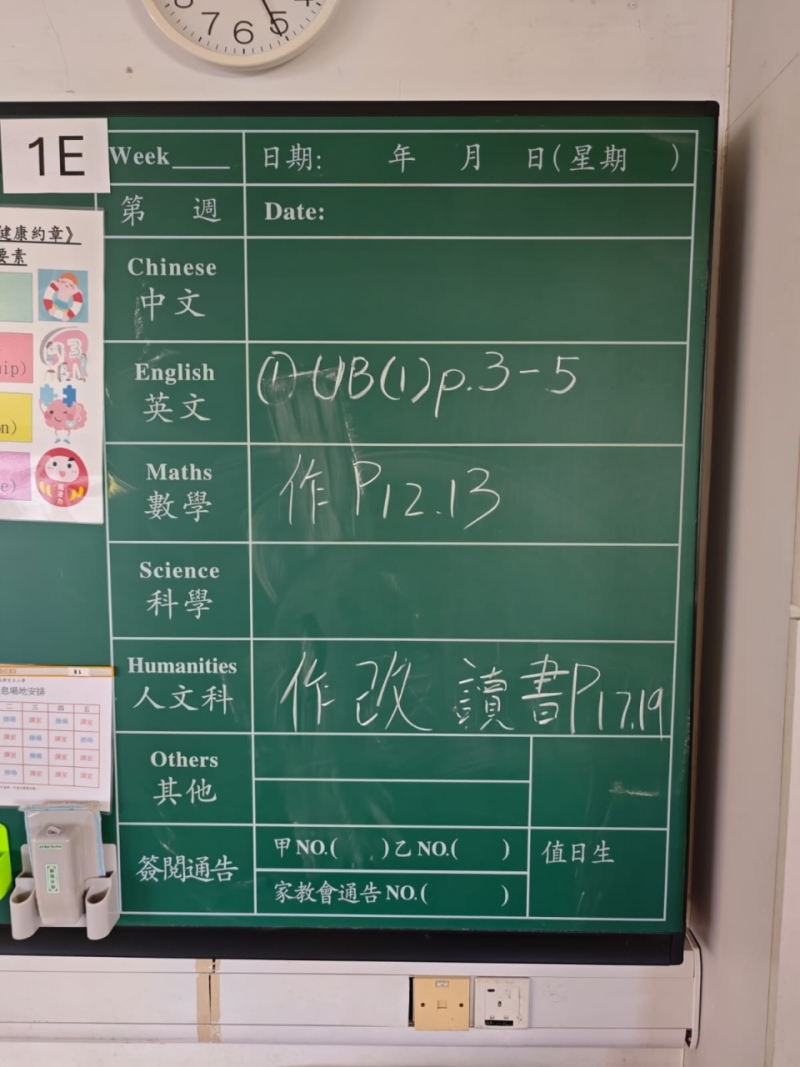 7 6 5
1E
Week____ 日期: 年 月 日(星期 )
第 週 Date:
健康約章》
要素
Chinese
中文
English
英文
① UB(1)p.3-5
Maths
數學
作 P12.13
Science
科學
Humanities
人文科
作改 讀書P17.19
Others
其他
簽閱通告
甲NO.( )乙NO.( )
家教會通告NO.( )
值日生
hip)
n)
e)
息場地安排
二 三 四 五